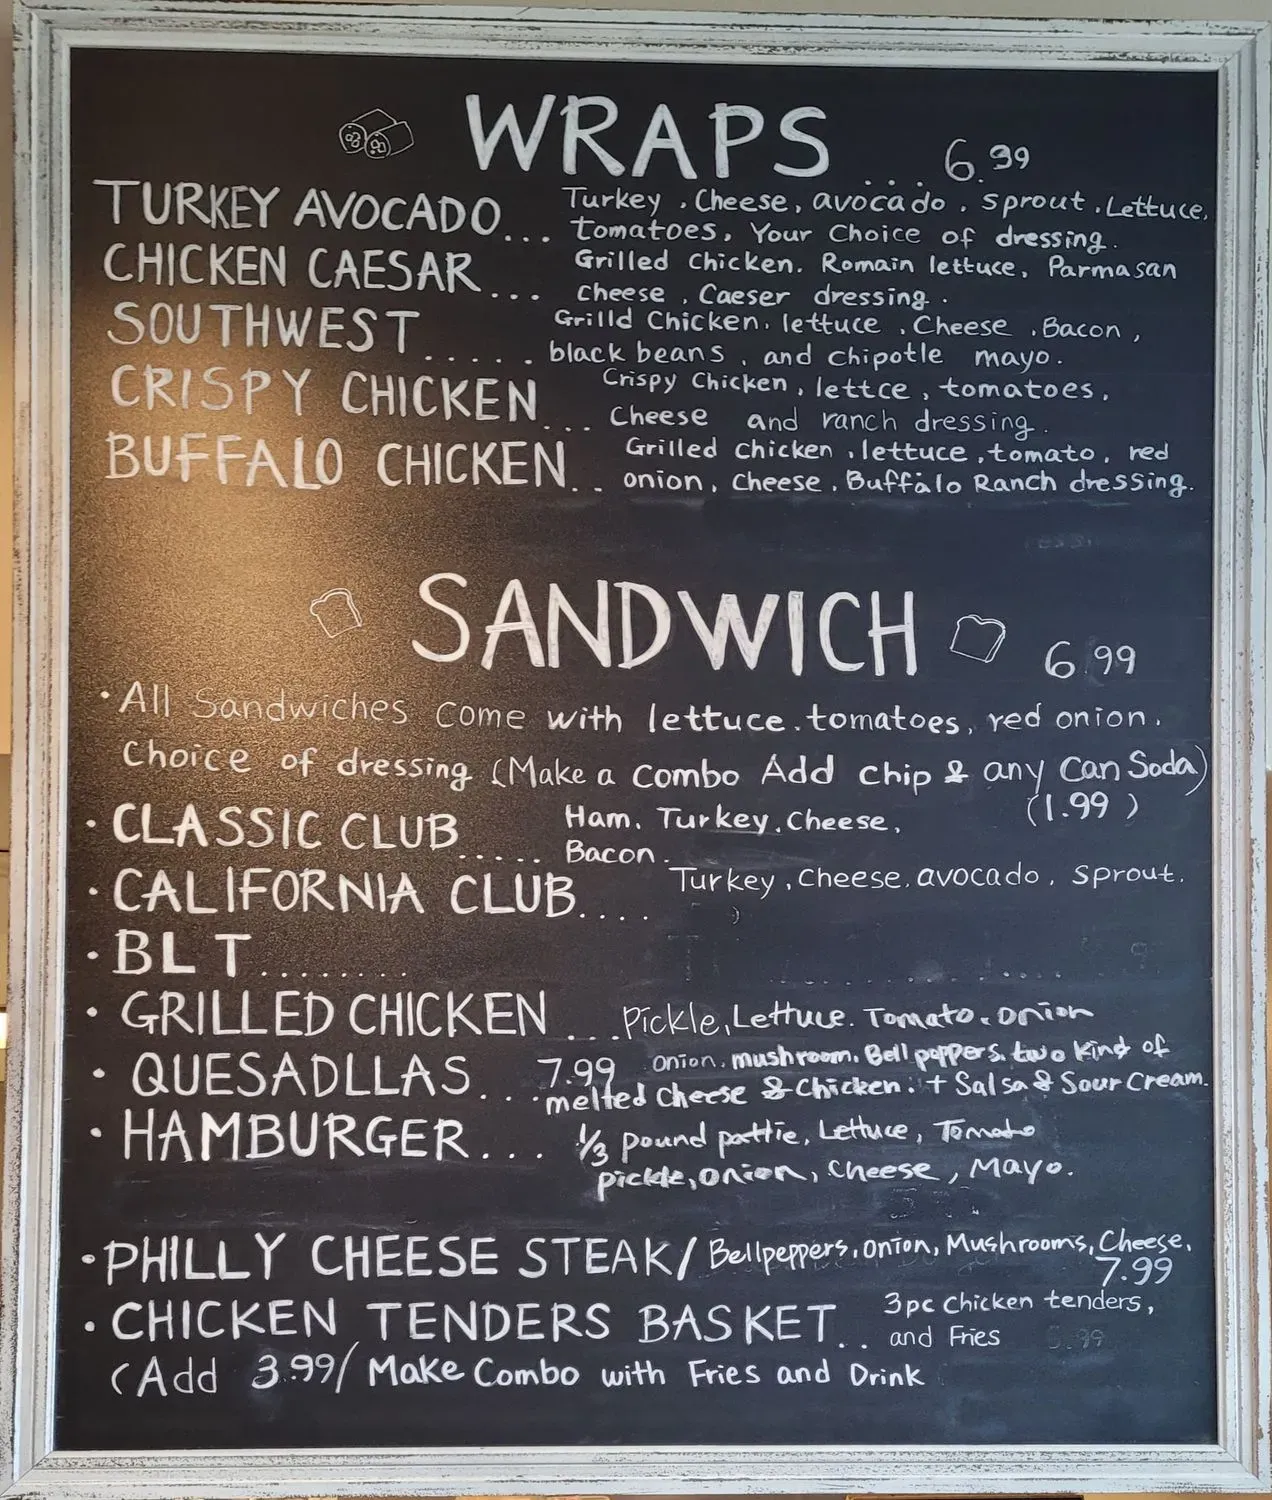 WRAPS ... 6.99
TURKEY AVOCADO... Turkey, Cheese, avocado, sprout, Lettuce,
tomatoes, Your Choice of dressing.
CHICKEN CAESAR ... Grilled Chicken. Romain lettuce, Parmasan
cheese, Caeser dressing.
SOUTHWEST ...... Grilld Chicken, lettuce, Cheese, Bacon,
black beans, and chipotle mayo.
CRISPY CHICKEN ... Crispy Chicken, lettce, tomatoes,
Cheese and ranch dressing.
BUFFALO CHICKEN .. Grilled Chicken, lettuce, tomato, red
onion, cheese, Buffalo Ranch dressing.
SANDWICH 6.99
• All Sandwiches come with lettuce, tomatoes, red onion.
Choice of dressing (Make a combo Add chip & any Can Soda)
(1.99)
• CLASSIC CLUB ..... Ham, Turkey, Cheese,
Bacon.
• CALIFORNIA CLUB.... Turkey, Cheese, avocado, sprout.
• BLT........
• GRILLED CHICKEN ... Pickle, Lettuce. Tomato, onion
• QUESADLLAS ... 7.99 onion, mushroom, Bell peppers, two kind of
melted cheese & Chicken. + Salsa & Sour Cream.
• HAMBURGER... 1/3 pound pattie, Lettuce, Tomato
pickle, onion, cheese, Mayo.
• PHILLY CHEESE STEAK/ Bellpeppers, onion, Mushrooms, Cheese.
7.99
• CHICKEN TENDERS BASKET.. 3pc Chicken tenders,
and Fries
(Add 3.99/ Make Combo with Fries and Drink